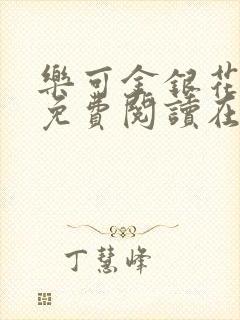 樂可金銀花
免費閱讀在
丁慧峰